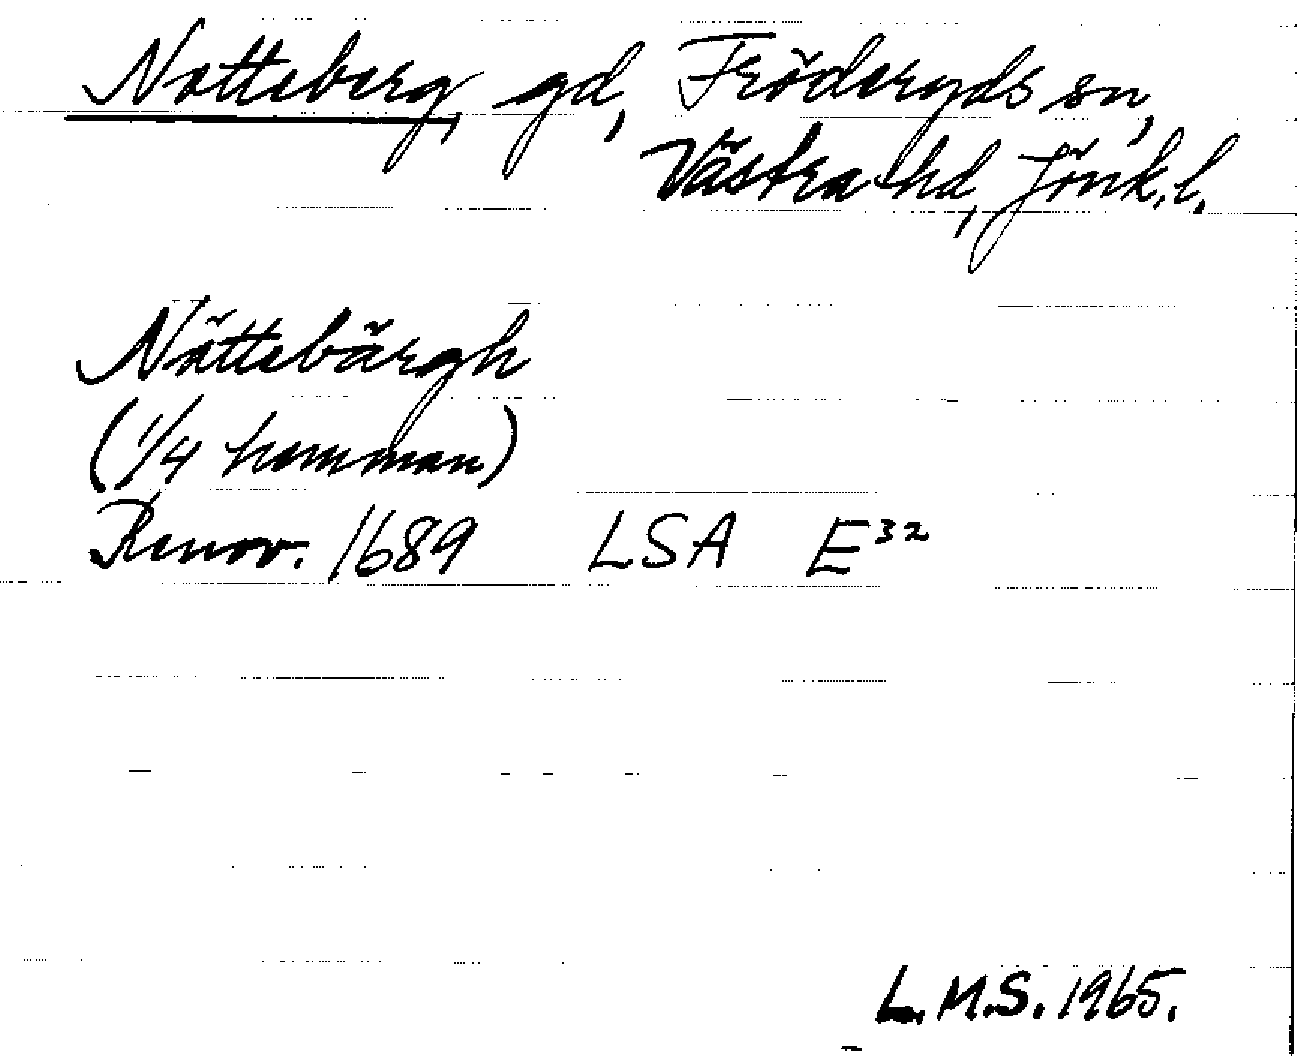 Notteberg, gd, Fröderyds sn,
Västra hd, Jönk.l.
Nöttebärgh
(1/4 hemman)
Renov. 1689 LSA E³²
L.M.S. 1965.